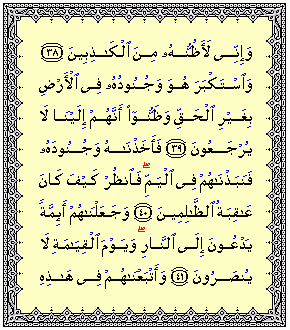 وَإِنِّى لَأَظُنُّهُۥ مِنَ ٱلْكَـٰذِبِينَ ٣٨
وَٱسْتَكْبَرَ هُوَ وَجُنُودُهُۥ فِى ٱلْأَرْضِ
بِغَيْرِ ٱلْحَقِّ وَظَنُّوٓا۟ أَنَّهُمْ إِلَيْنَا لَا
يُرْجَعُونَ ٣٩ فَأَخَذْنَـٰهُ وَجُنُودَهُۥ
فَنَبَذْنَـٰهُمْ فِى ٱلْيَمِّ ۖ فَٱنظُرْ كَيْفَ كَانَ
عَـٰقِبَةُ ٱلظَّـٰلِمِينَ ٤٠ وَجَعَلْنَـٰهُمْ أَئِمَّةً
يَدْعُونَ إِلَى ٱلنَّارِ ۖ وَيَوْمَ ٱلْقِيَـٰمَةِ لَا
يُنصَرُونَ ٤١ وَأَتْبَعْنَـٰهُمْ فِى هَـٰذِهِ